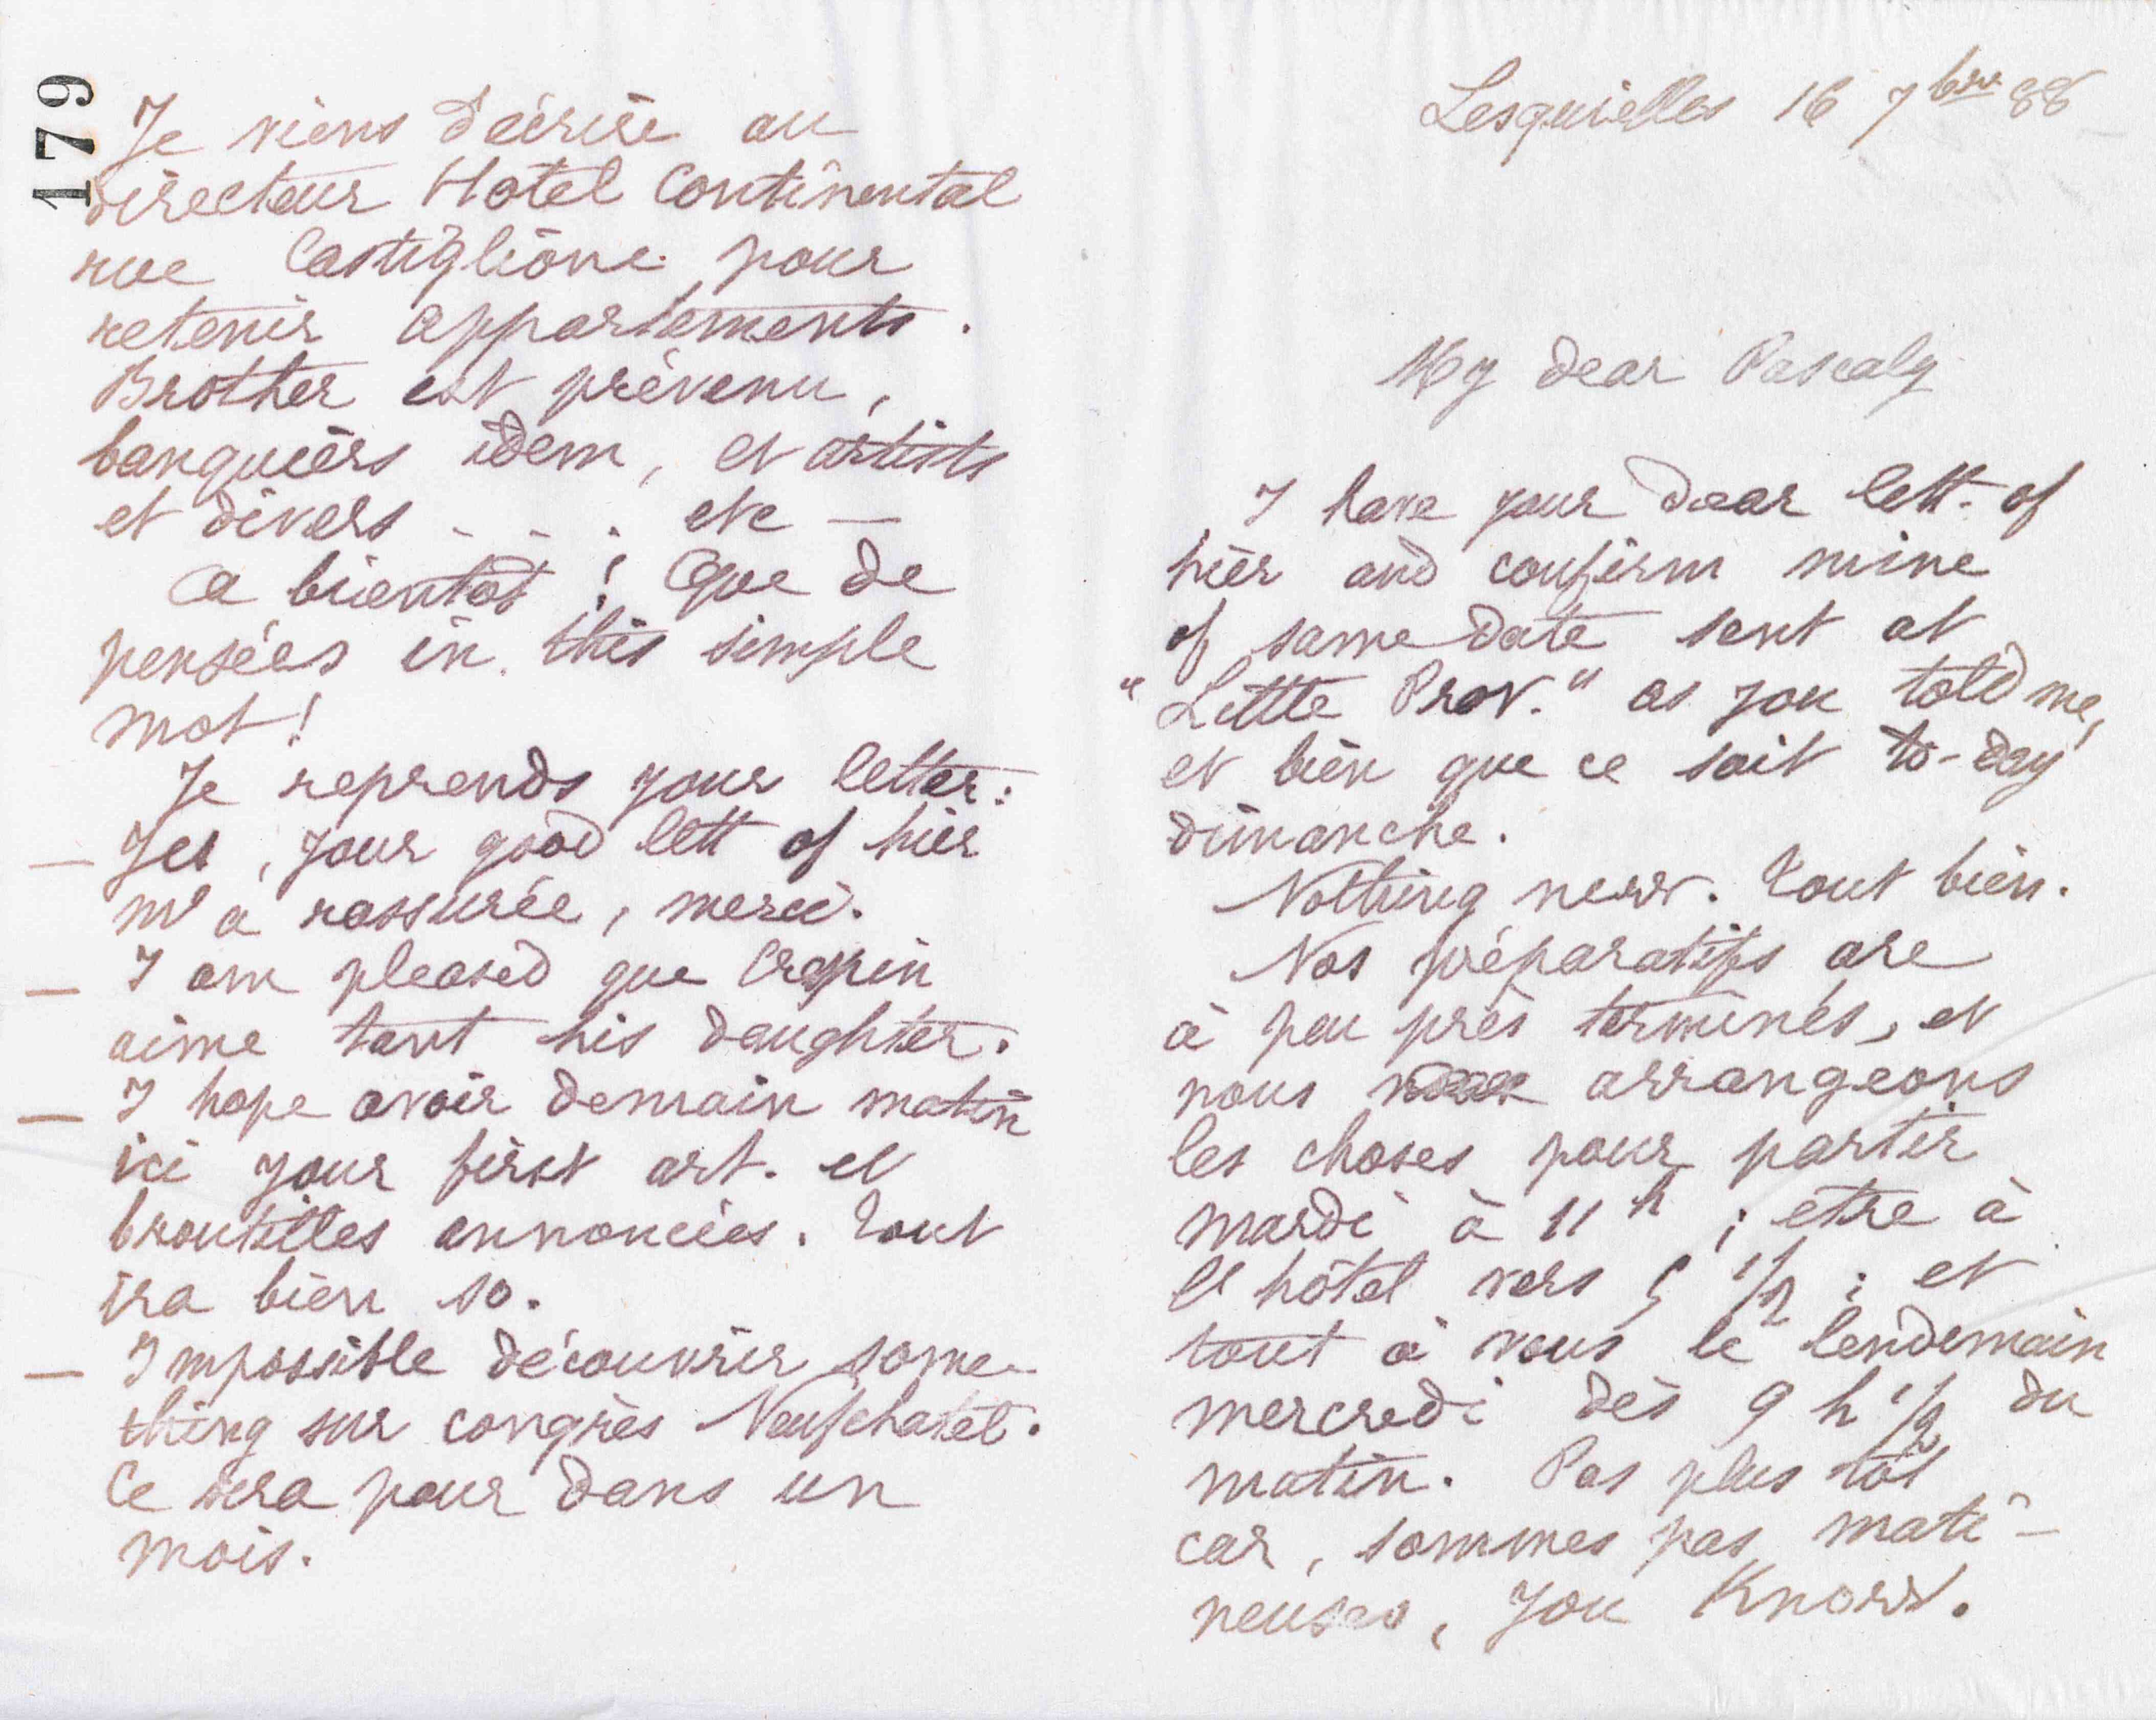 179
Lesquielles 16 7bre 88
My dear Pascaly
I have your dear lett. of
hier and confirm mine
of same date sent at
"Little Prov." as you told me,
et bien que ce soit to-day
dimanche.
Nothing new. Tout bien.
Nos préparatifs are
à peu près terminés, et
nous arrangeons
les choses pour partir
mardi à 11 h ; être à
l'hôtel vers 5 1/2 ; et
tout à vous le lendemain
mercredi dès 9 h 1/2 du
matin. Pas plus tôt
car, sommes pas mati-
neuses, you know.
Je viens d'écrire au
directeur Hotel Continental
rue Castiglione pour
retenir appartements.
Brother est prévenu,
banquiers idem, et artists
et divers . . . etc —
A bientôt ! Que de
pensées in this simple
mot !
Je reprends your letter :
— Yes, your good lett of hier
m'a rassurée, merci.
— I am pleased que Crespin
aime tant his daughter.
— I hope avoir demain matin
ici your first art. et
broutilles annoncées. Tout
ira bien so.
— Impossible découvrir some-
thing sur congrès Neufchatel.
Ce sera pour dans un
mois.